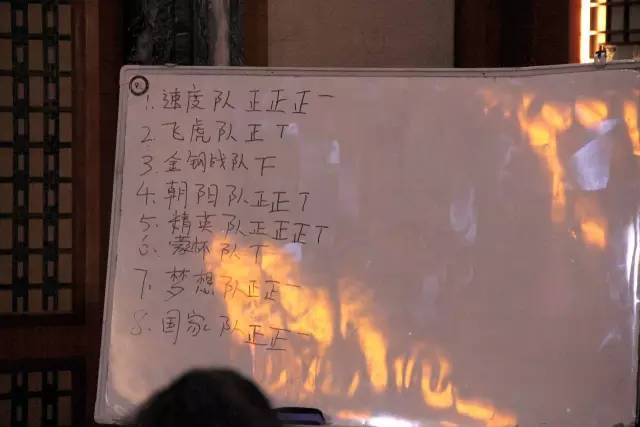 1. 速度队 正正正一
2. 飞虎队 正丅
3. 金钢战队 下
4. 朝阳队 正正丅
5. 精英队 正正正丅
6. 队 下
7. 梦想队 正正一
8. 国家队 正正一